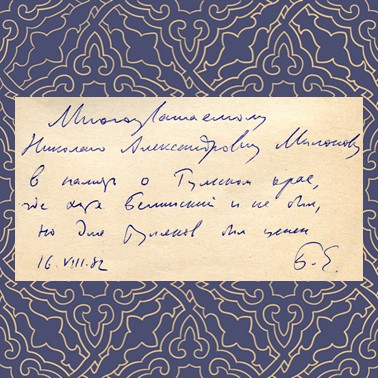 Многоуважаемому
Николаю Александровичу Милонову
в память о Тульском крае,
где хотя Белинский и не был,
но для туляков был
16.VIII.82 Б. Е.